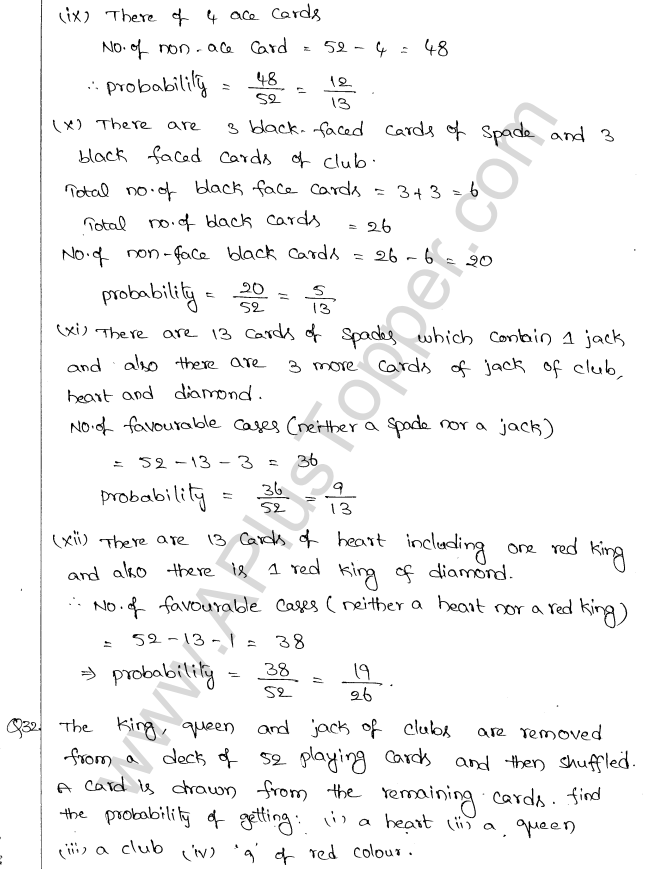 (ix) There of 4 ace cards
No. of non-ace card = 52 - 4 = 48
∴ probability = 48/52 = 12/13 .
(x) There are 3 black-faced cards of spade and 3
black faced cards of club.
Total no. of black face cards = 3 + 3 = 6
Total no. of black cards = 26
No. of non-face black cards = 26 - 6 = 20
probability = 20/52 = 5/13
(xi) There are 13 cards of spades which contain 1 jack
and also there are 3 more cards of jack of club,
heart and diamond.
No. of favourable cases (neither a spade nor a jack)
= 52 - 13 - 3 = 36
probability = 36/52 = 9/13
(xii) There are 13 cards of heart including one red king
and also there is 1 red king of diamond.
∴ No. of favourable cases (neither a heart nor a red king)
= 52 - 13 - 1 = 38
⇒ probability = 38/52 = 19/26 .
Q32. The king, queen and jack of clubs are removed
from a deck of 52 playing cards and then shuffled.
A card is drawn from the remaining cards. find
the probability of getting: (i) a heart (ii) a queen
(iii) a club (iv) '9' of red colour.
www.APlusTopper.com